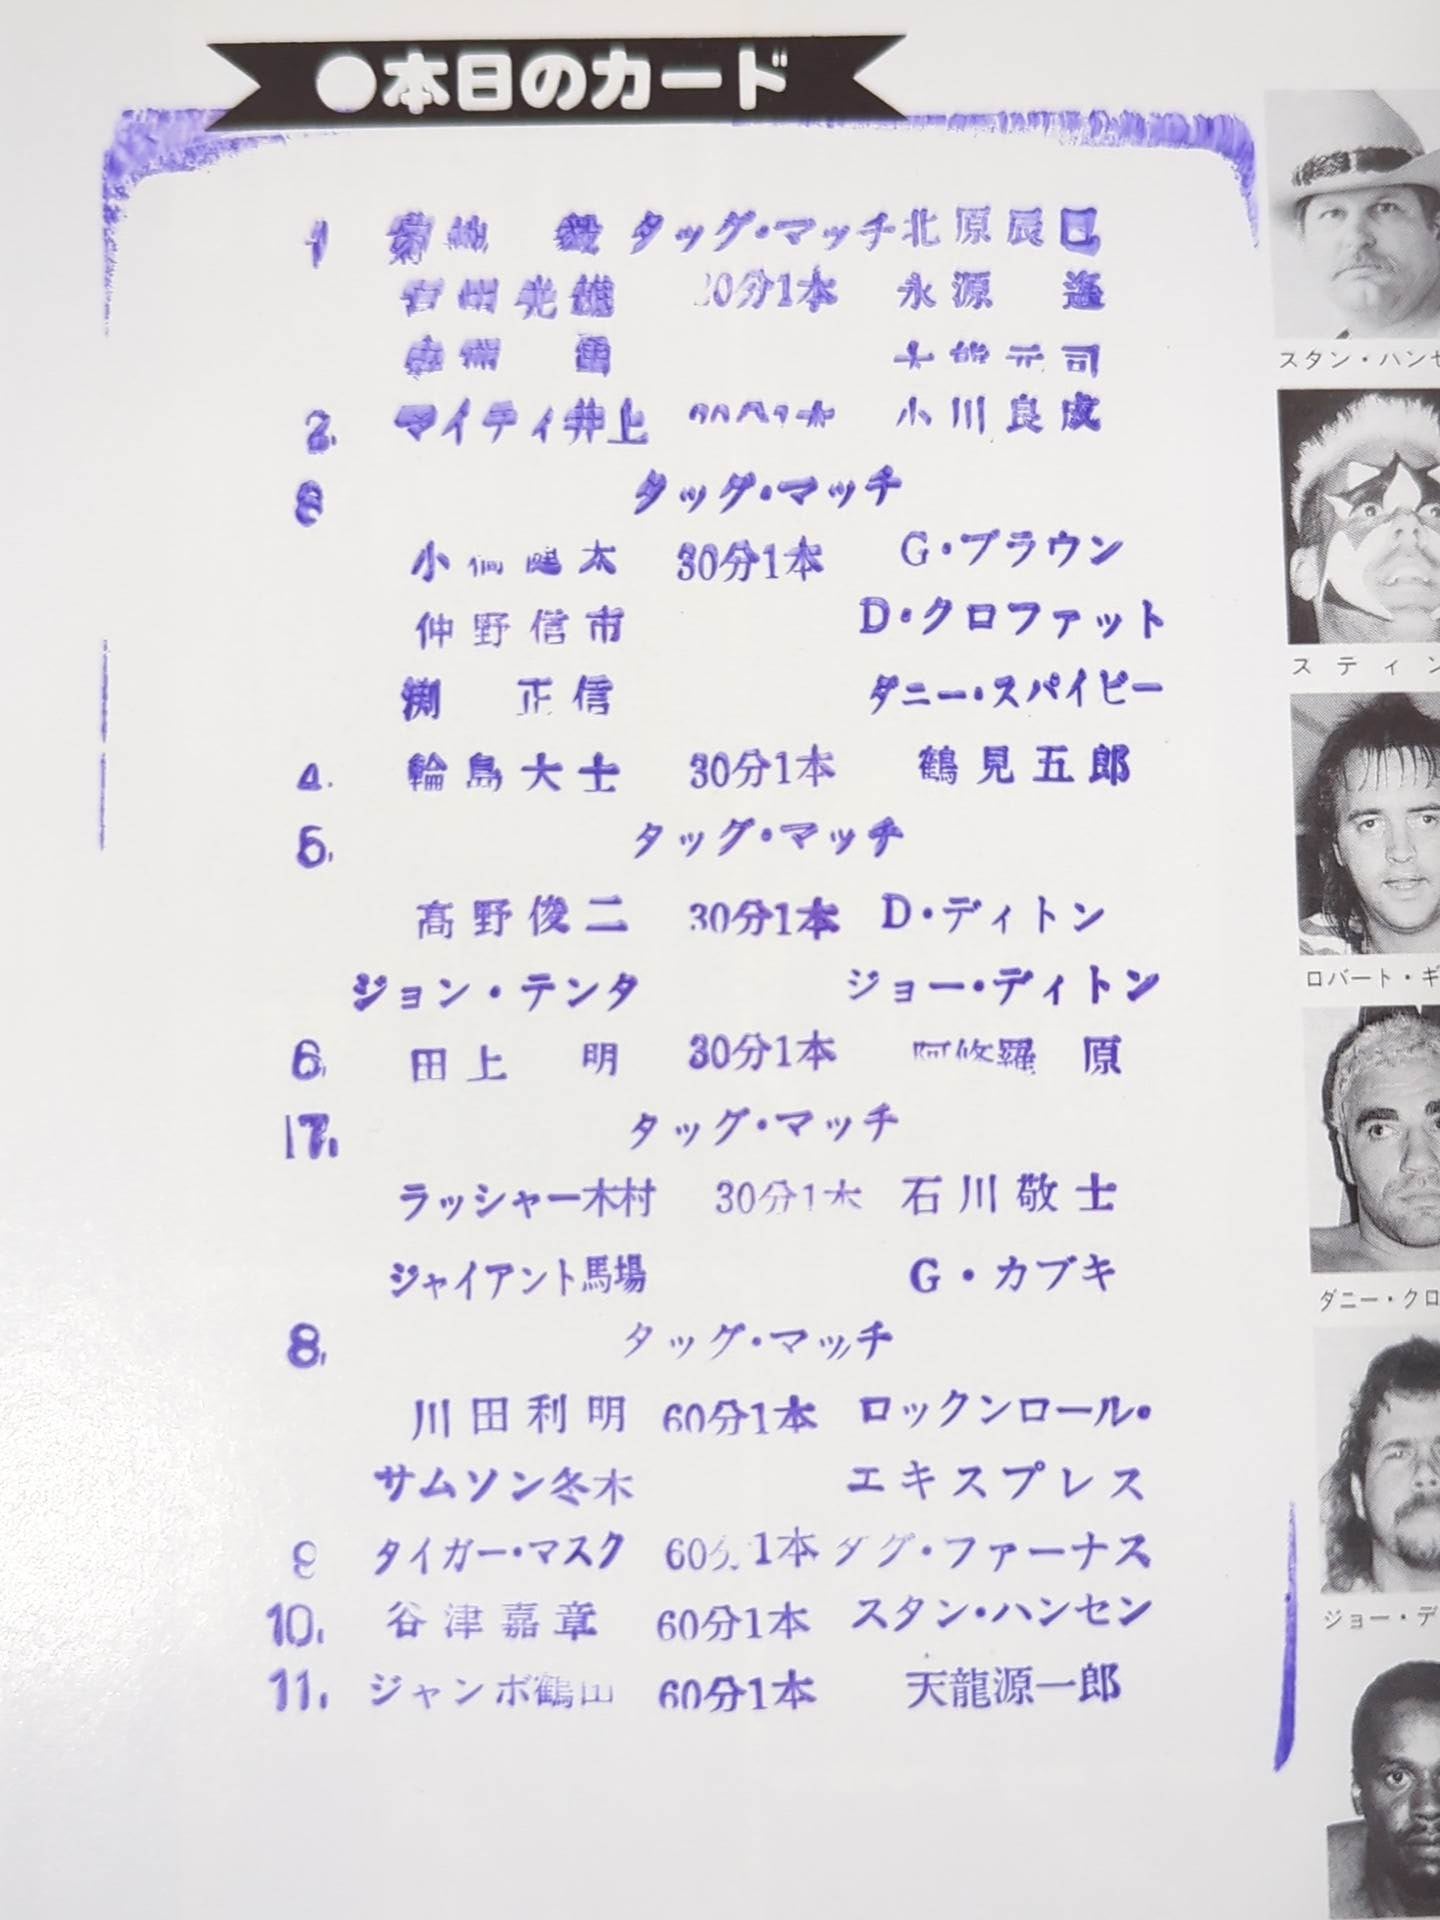 ●本日のカード
1 菊地 毅 タッグ・マッチ 北原辰巳
百田光雄 30分1本 永源 遙
寺西 勇 大熊元司
2. マイティ井上 20分1本 小川良成
3 タッグ・マッチ
小橋健太 30分1本 G・ブラウン
仲野信市 D・クロファット
渕 正信 ダニー・スパイビー
4. 輪島大士 30分1本 鶴見五郎
5. タッグ・マッチ
高野俊二 30分1本 D・ディトン
ジョン・テンタ ジョー・ディトン
6. 田上 明 30分1本 阿修羅 原
7. タッグ・マッチ
ラッシャー木村 30分1本 石川敬士
ジャイアント馬場 G・カブキ
8. タッグ・マッチ
川田利明 60分1本 ロックンロール・
サムソン冬木 エキスプレス
9 タイガー・マスク 60分1本 ダグ・ファーナス
10. 谷津嘉章 60分1本 スタン・ハンセン
11. ジャンボ鶴田 60分1本 天龍源一郎
スタン・ハンセ
スティン
ロバート・ギ
ダニー・クロ
ジョー・デ